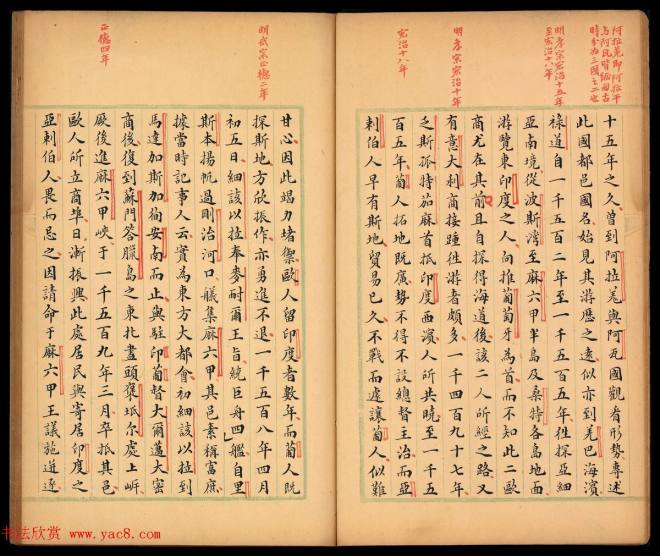 阿拉荒即阿拉干
與阿瓦皆緬甸古
時分為三國之二也
明孝宗宏治十五年
至宏治十八年
明孝宗宏治十年
宏治十八年
十五年之久曾到阿拉荒與阿瓦國觀者形勢專述
此國都邑國名始見其游歷之遠似亦到羌巴海濱
祿道自一千五百二年至一千五百五年徃探亞細
亞南境從波斯灣至麻六甲半島及桑特各島地面
游覽東印度之人向推葡萄牙為首而不知此二歐
商尤在其前且自探得海道後該二人所經之路又
有意大利商接踵徃游者頗多一千四百九十七年
之斯孤特茄麻首抵印度西濱人所共曉至一千五
百五年葡人拓地既廣勢不得不設總督主治而亞
剌伯人早有斯地貿易已久不戰而遽讓葡人似難
明武宗正德二年
正德四年
甘心因此竭力堵禦歐人留印度者數年而葡人既
探斯地方欣振作亦勇進不退一千五百八年四月
初五日細該以拉奉麥耐爾王旨統巨舟四艦自里
斯本揚帆過剛治河口艤集麻六甲其邑素稱富庶
據當時記事人云實為東方大都會初細該以拉到
馬達加斯加徇安南而止與駐印葡督大爾邁大密
商後復到蘇門答臘島之東北盡頭褒坻尔處上岍
厥後進麻六甲峽于一千五百九年三月卒抵其邑
歐人所立商埠日漸振興此處居民與寄居印度之
亞剌伯人畏而忌之因請命于麻六甲王議施逆逐
书法欣赏 www.yac8.com